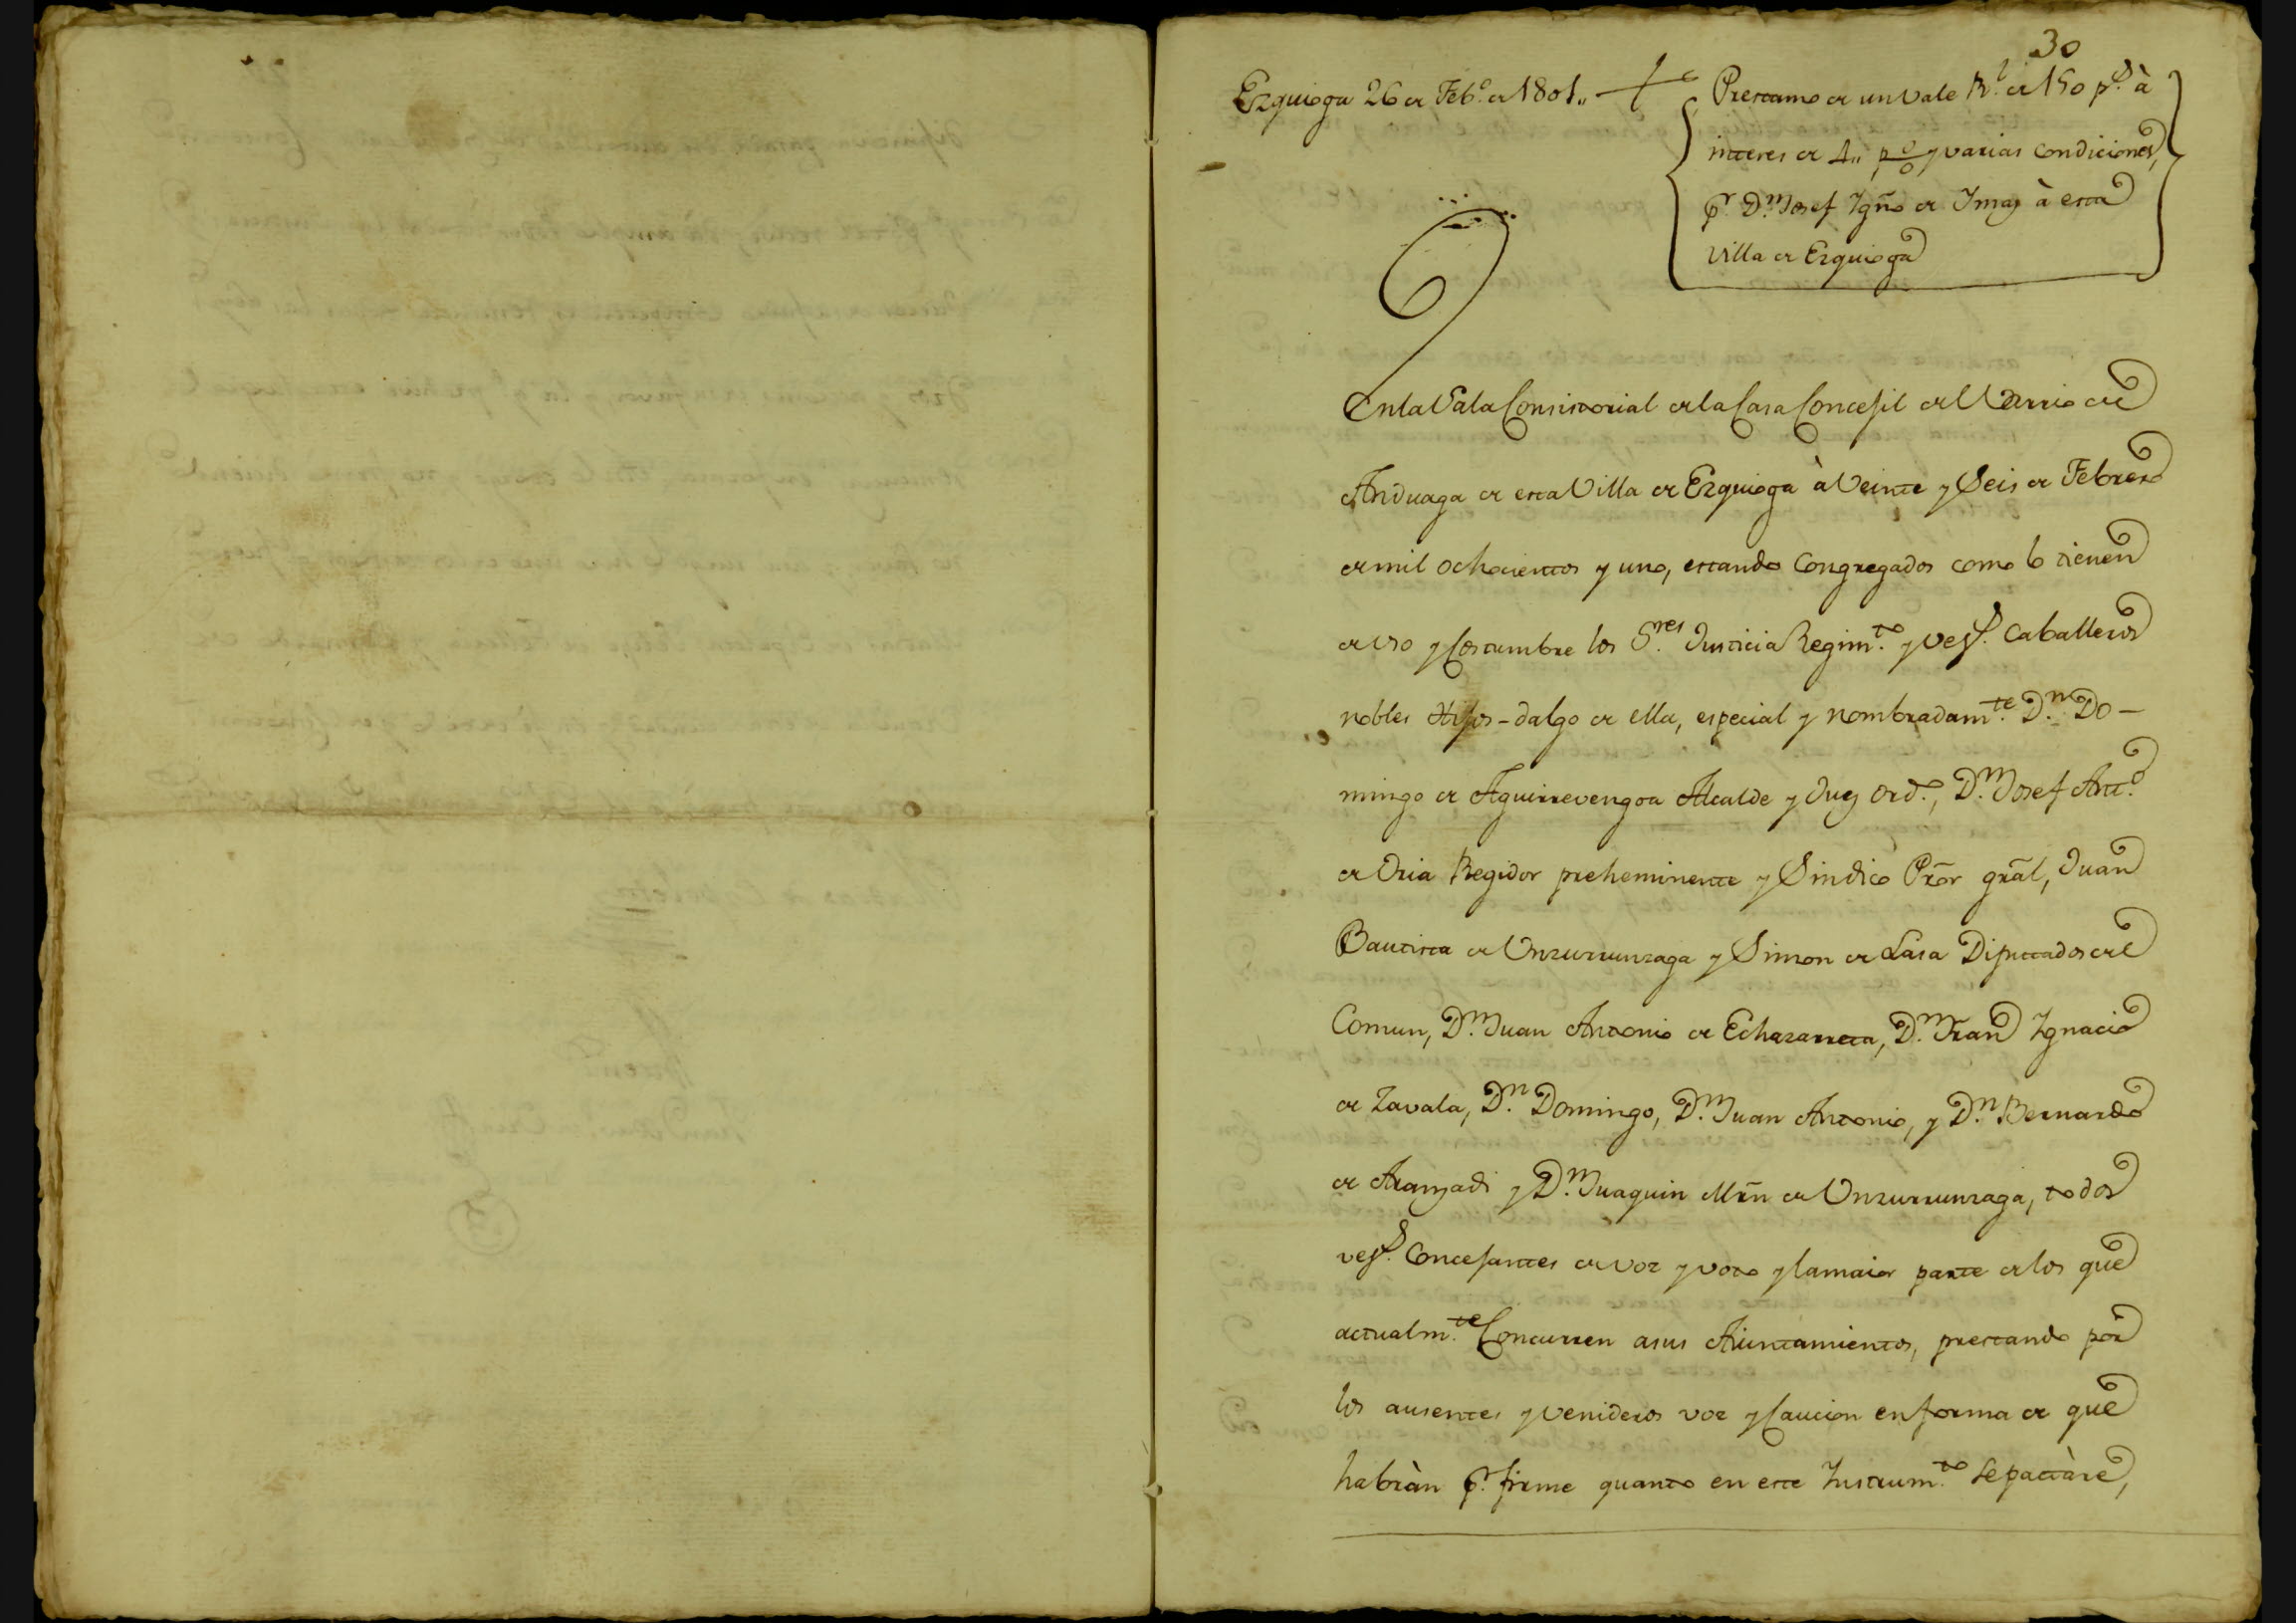 30
Ezquioga 26 de Feb.º de 1801.,
Prestamo de un Vale R.l de 150 p.s à
interes de 4,, p% y varias condiciones,
p.r D.n Josef Ygñο de Ymaz à esta
Villa de Ezquioga
En la Sala Consistorial de la Casa Concejil del Varrio de
Anduaga de esta Villa de Ezquioga à Veinte y Seis de Febrero
de mil ochocientos y uno, estando Congregados como lo tienen
de uso y Costumbre los S.res Justicia Regim.to y vez.s Caballeros
nobles Hijos-dalgo de ella, especial y nombradam.te D.n Do-
mingo de Aguirrevengoa Alcalde y Juez ord.º, D.n Josef Ant.º
de Oria Regidor preheminente y Sindico Pr̃or gr̃al, Juan
Bautista de Unzurrunzaga y Simon de Lasa Diputados del
Comun, D.n Juan Antonio de Echazarreta, D.n Fran Ygnacio
de Zavala, D.n Domingo, D.n Juan Antonio, y D.n Bernardo
de Aranzadi y D.n Juaquin Mr̃n de Unzurrunzaga, todos
vez.s Concejantes de voz y voto y la maior parte de los que
actualm.te Concurren a sus Aiuntamientos, prestando por
los ausentes y venideros voz y Caucion en forma de que
habràn p.r firme quanto en este Instrum.to se pactàre,